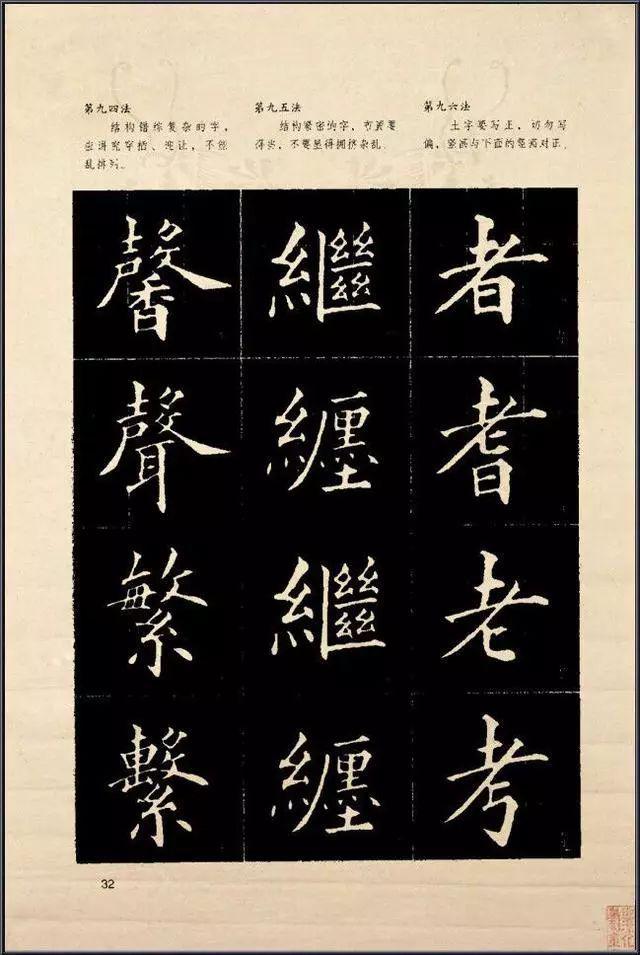 第九四法
结构错综复杂的字,
讲究穿插、让,不能
乱排列。
第九五法
结构紧密的字,布置要
得当,不要显得拥挤杂乱.
第九六法
土字要写正,切勿写
偏,竖画与下面的竖画对正.
馨 繼 者
聲 纏 耆
繁 繼 老
繫 纏 考
32